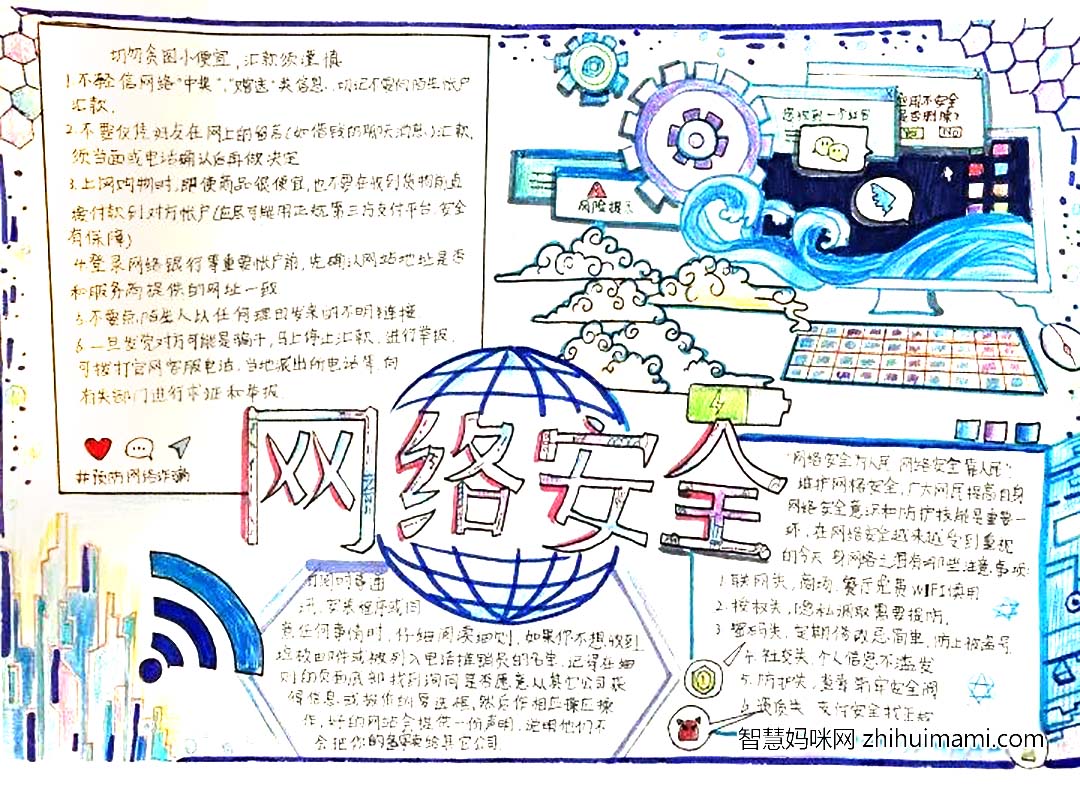 切勿贪图小便宜,汇款须谨慎
1.不轻信网络"中奖","赠送"类信息,切记不要向陌生帐户
汇款.
2.不要仅凭好友在网上的留言(如借钱的聊天消息)汇款,
须当面或电话确认后再做决定
3.上网购物时,即使商品很便宜,也不要在收到货物前直
接付款到对方帐户(应尽可能用正规第三方支付平台,安全
有保障)
4.登录网络银行等重要帐户前,先确认网站地址是否
和服务商提供的网址一致
5.不要点陌生人以任何理由发来的不明链接
6.一旦发觉对方可能是骗子,马上停止汇款,进行举报.
可拨打官网客服电话,当地派出所电话等,向
有关部门进行求证和举报.
#预防网络诈骗
风险提示
您收到一个红包
应用不安全
是否删除?
YES NO
网络安全
"网络安全为人民 网络安全靠人民"
维护网络安全,广大网民提高自身
网络安全意识和防护技能是重要一
环,在网络安全越来越受到重视
的今天,
1.联网关,商场、餐厅免费WIFI慎用
2.授权关,隐私调取需要提防,
3.密码关,定期修改忌简单,防止被盗号
4.社交关,个人信息不滥发
5.防护关,
支付安全
订阅网易通
讯,安装程序或同
意任何事情时,仔细阅读细则,如果你不想收到
垃圾邮件或被列入电话推销员的名单,记得在细
则的页面底部找到询问是否愿意从其它公司获
得信息,
作,好的网站会提供一份声明,说明他们不
会把你的名字卖给其它公司.
智慧妈咪网 zhihuimami.com